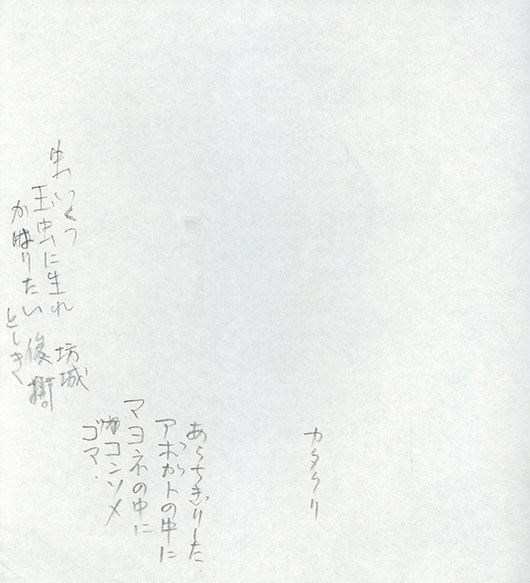 カタクリ
あらちぎりした
アボカトの中に
マヨネの中に
コンソメ
ゴマ.
虫いくつ
玉虫に生れ
かはりたい
坊城
俊樹
としき